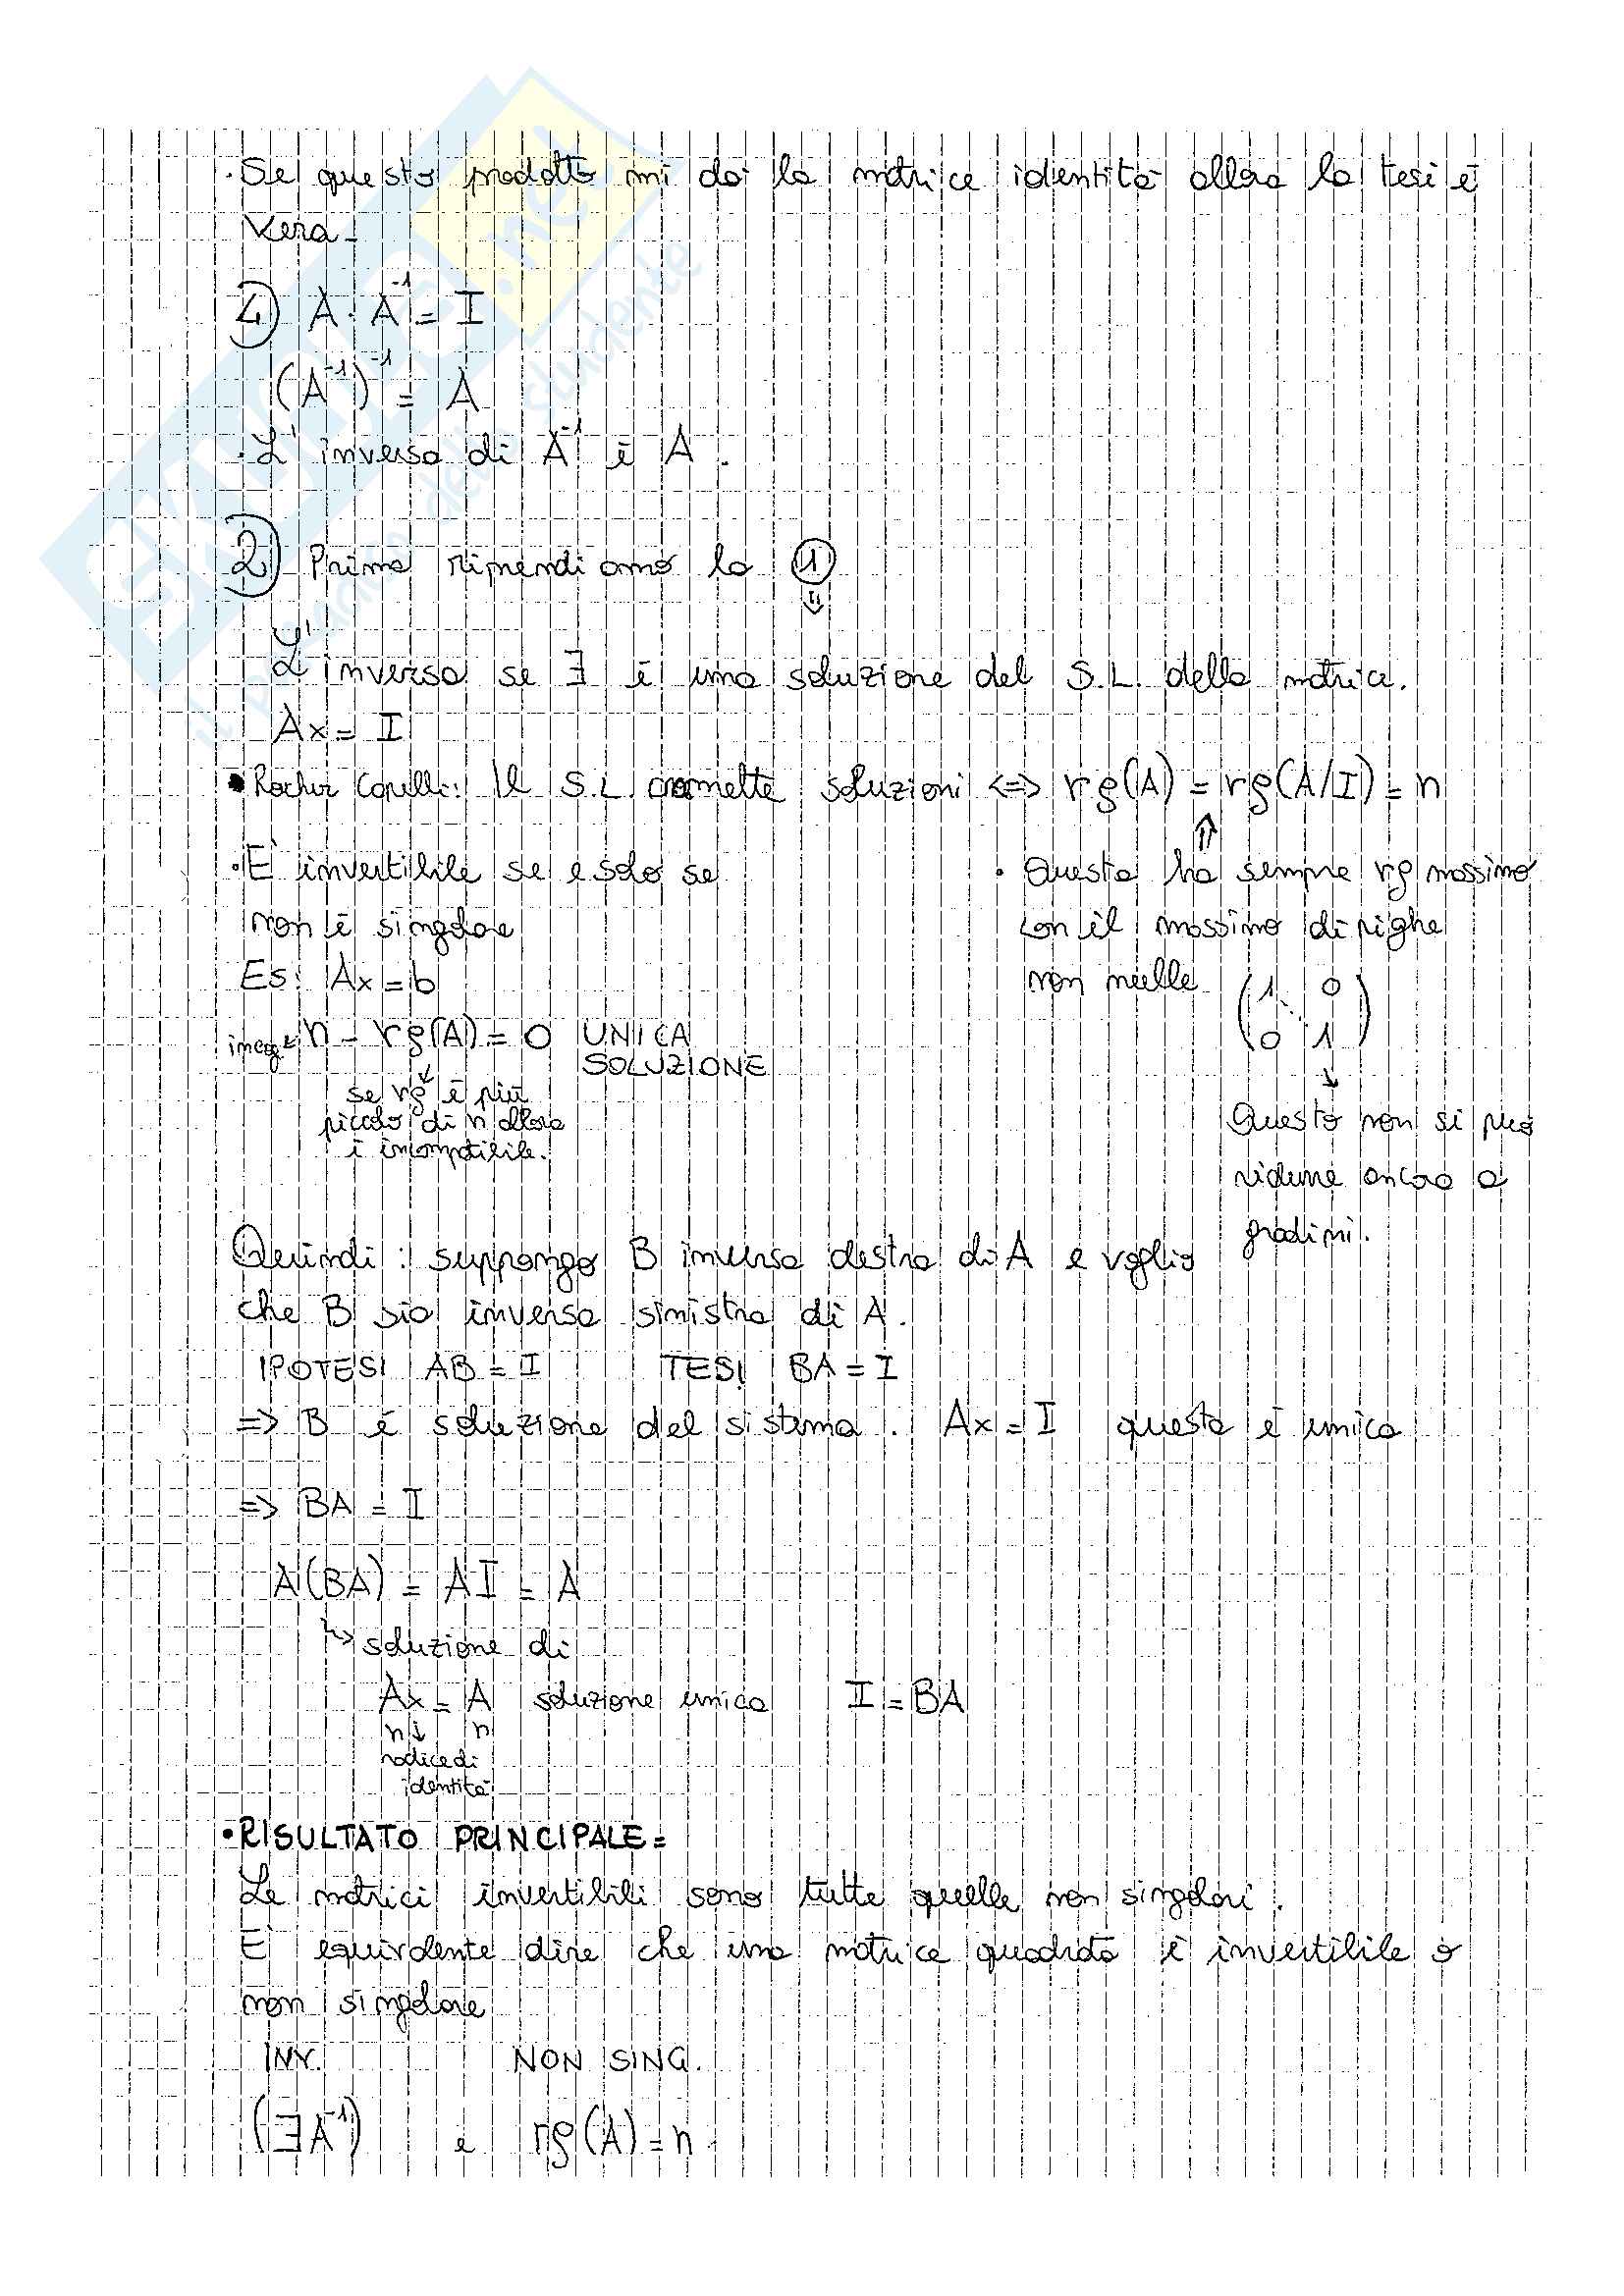 · Se questo prodotto mi dà la matrice identità allora la tesi è
vera
4) A · A⁻¹ = I
(A⁻¹)⁻¹ = A
· L'inversa di A⁻¹ è A.
2) Prima riprendiamo la ①
⇓
L'inversa se ∃ è una soluzione del S.L. della matrice.
Ax = I
• Capelli: Il S.L. ammette soluzioni <=> rg(A) = rg(A/I) = n
⇑
· È invertibile se e solo se
non è singolare
Es: Ax = b
n - rg(A) = 0 UNICA
SOLUZIONE
↓
se rg è più
piccolo di n allora
è incompatibile.
· Questa ha sempre rg massimo
con il massimo di righe
non nulle
(1 0
0 1)
↓
Questo non si può
ridurre ancora a
gradini.
Quindi: suppongo B inversa destra di A e voglio
che B sia inversa sinistra di A.
IPOTESI AB = I TESI BA = I
=> B è soluzione del sistema. Ax = I questa è unica
=> BA = I
A(BA) = AI = A
↳ soluzione di
Ax = A soluzione unica I = BA
n ↓ n
identità
• RISULTATO PRINCIPALE =
Le matrici invertibili sono tutte quelle non singolari.
È equivalente dire che una matrice quadrata è invertibile o
non singolare
INV. NON SING.
(∃A⁻¹) e rg(A) = n.
skuola.net
il paradiso dello studente